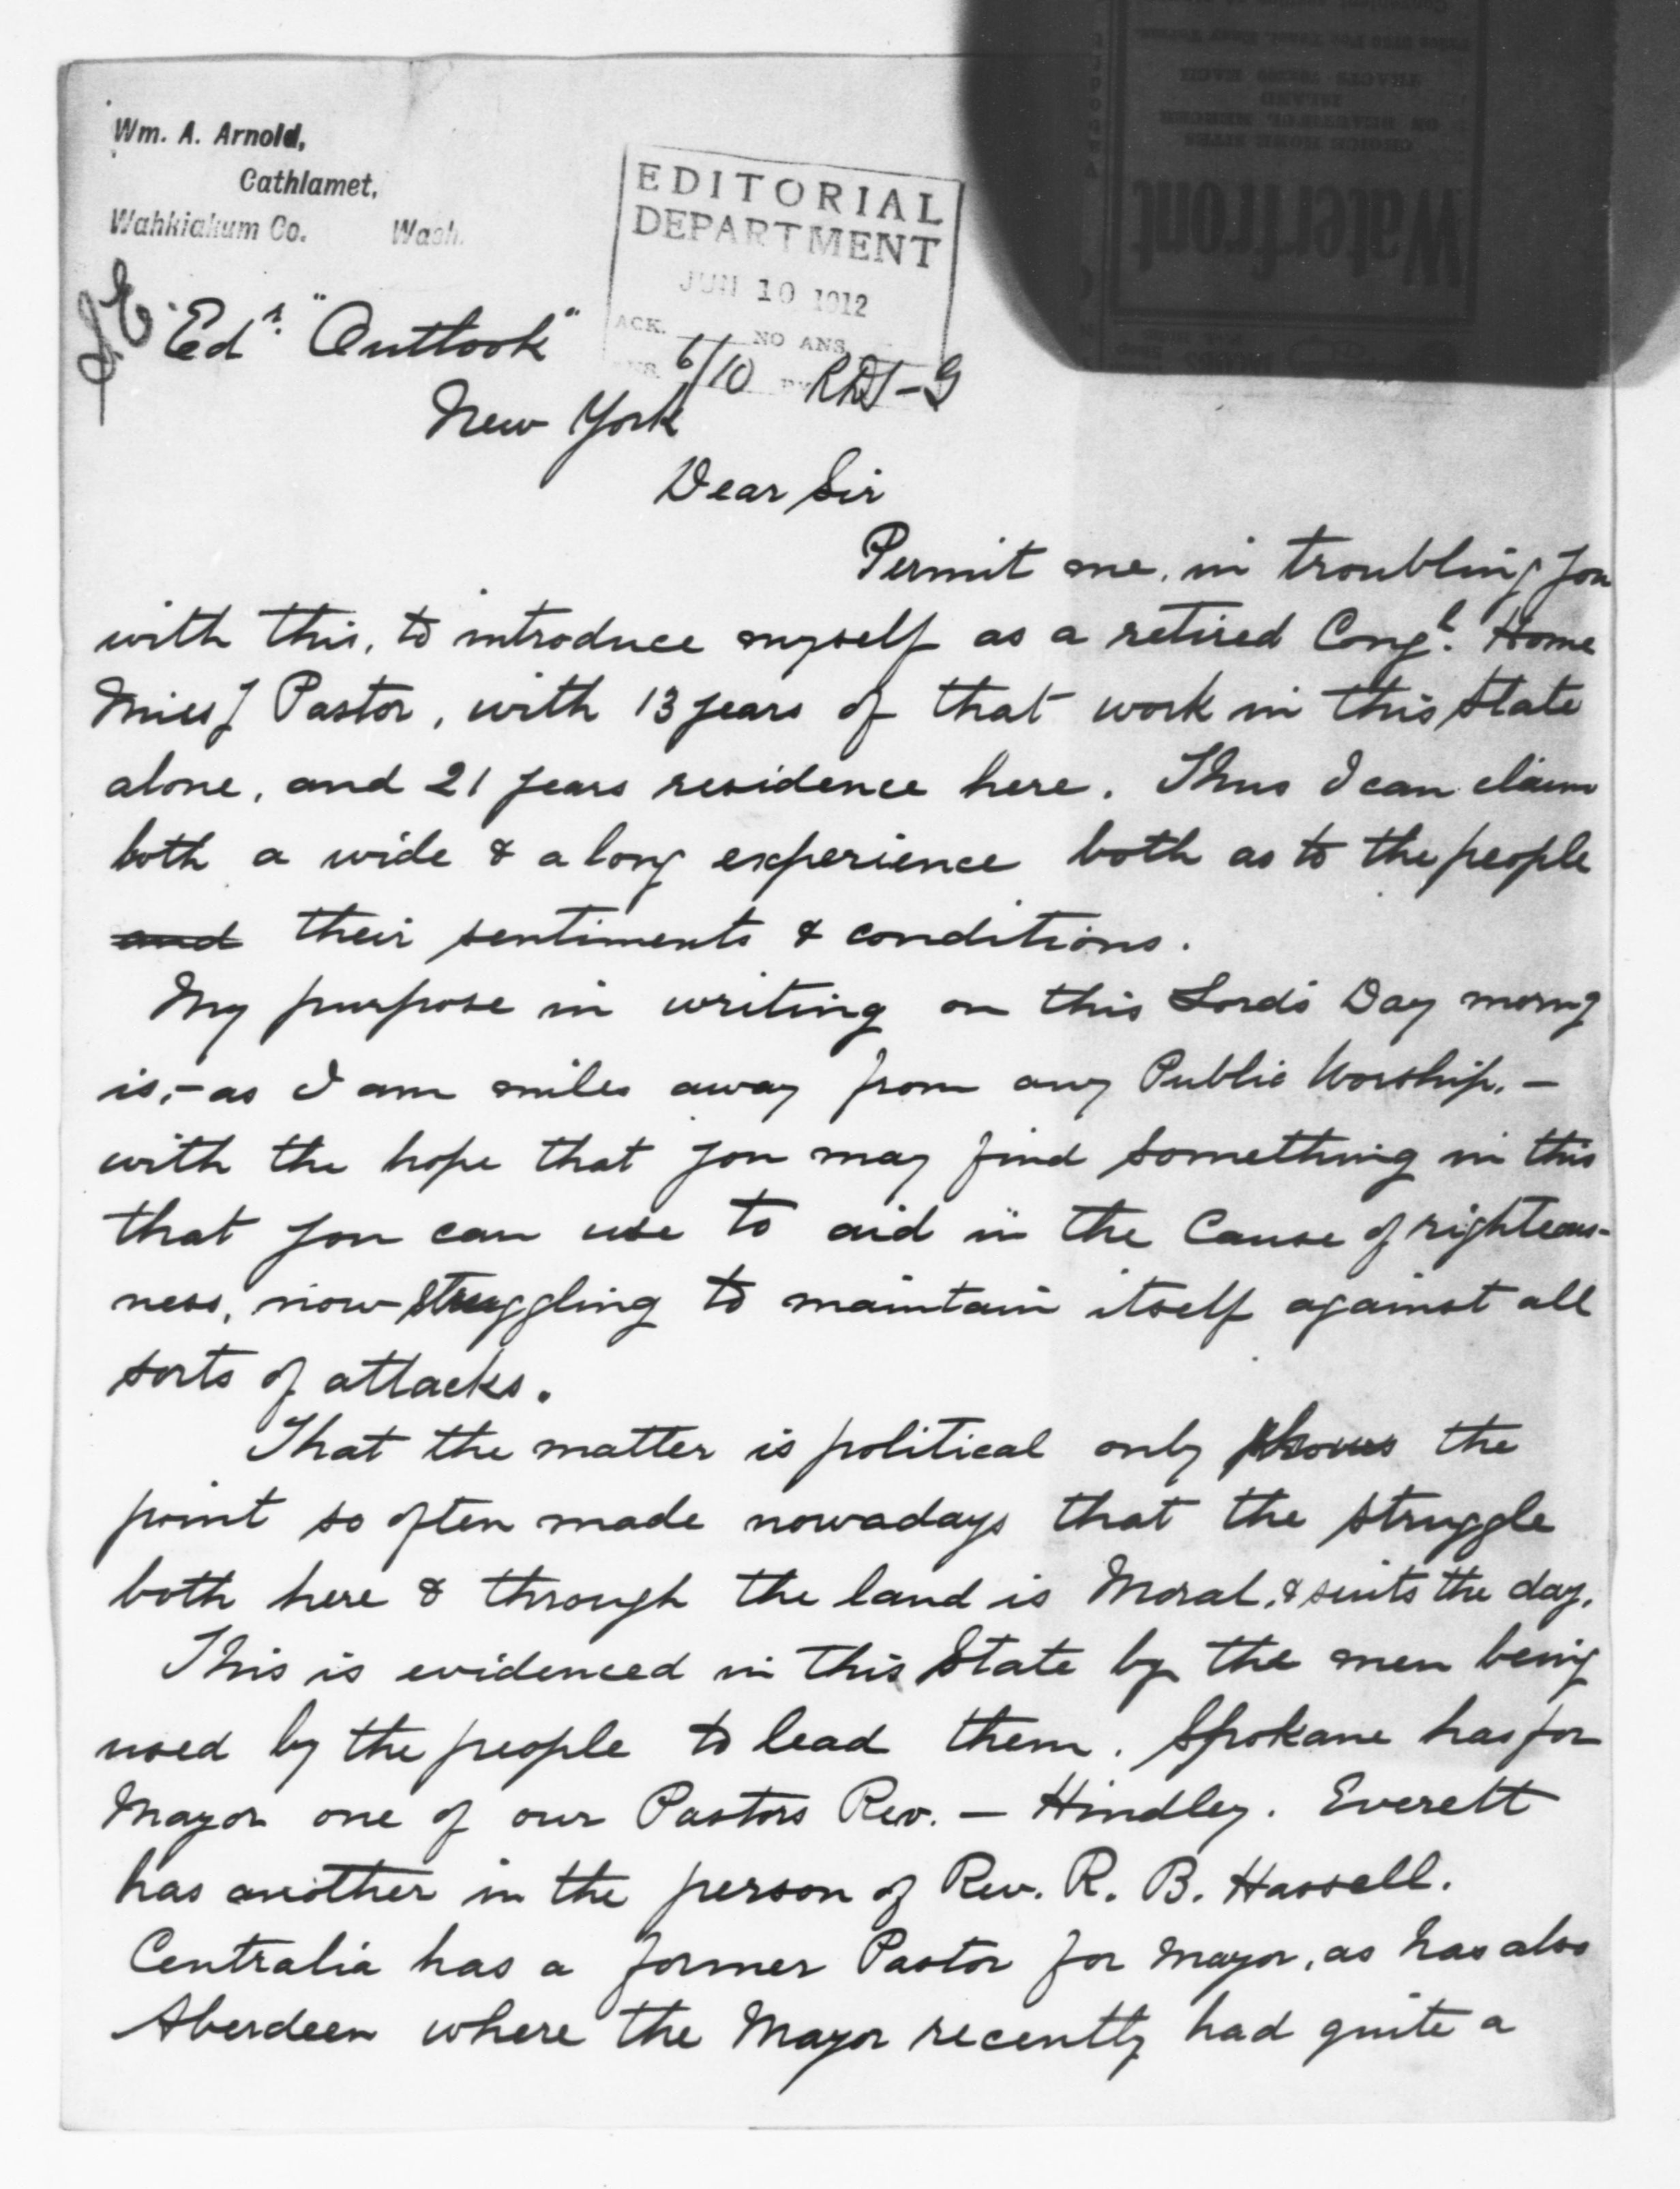 Wm. A. Arnold,
Cathlamet,
Wahkiakum Co. Wash.
EDITORIAL
DEPARTMENT
JUN 10 1912
ACK. NO ANS.
6/10
Ed^s. "Outlook"
New York
Dear Sir
Permit me, in troubling you
with this, to introduce myself as a retired Cong^l. Home
Miss^y Pastor, with 13 years of that work in this State
alone, and 21 years residence here. Thus I can claim
both a wide & a long experience both as to the people
and their sentiments & conditions.
My purpose in writing on this Lord's Day morng
is,- as I am miles away from any Public Worship, -
with the hope that you may find something in this
that you can use to aid in the Cause of righteous-
ness, now struggling to maintain itself against all
sorts of attacks.
That the matter is political only shows the
point so often made nowadays that the struggle
both here & through the land is Moral, & suits the day.
This is evidenced in this State by the men being
used by the people to lead them. Spokane has for
Mayor one of our Pastors Rev. - Hindley. Everett
has another in the person of Rev. R. B. Hassell.
Centralia has a former Pastor for Mayor, as has also
Aberdeen where the Mayor recently had quite a
Waterfront
CHOICE HOME SITES
ON BEAUTIFUL MERCER
ISLAND